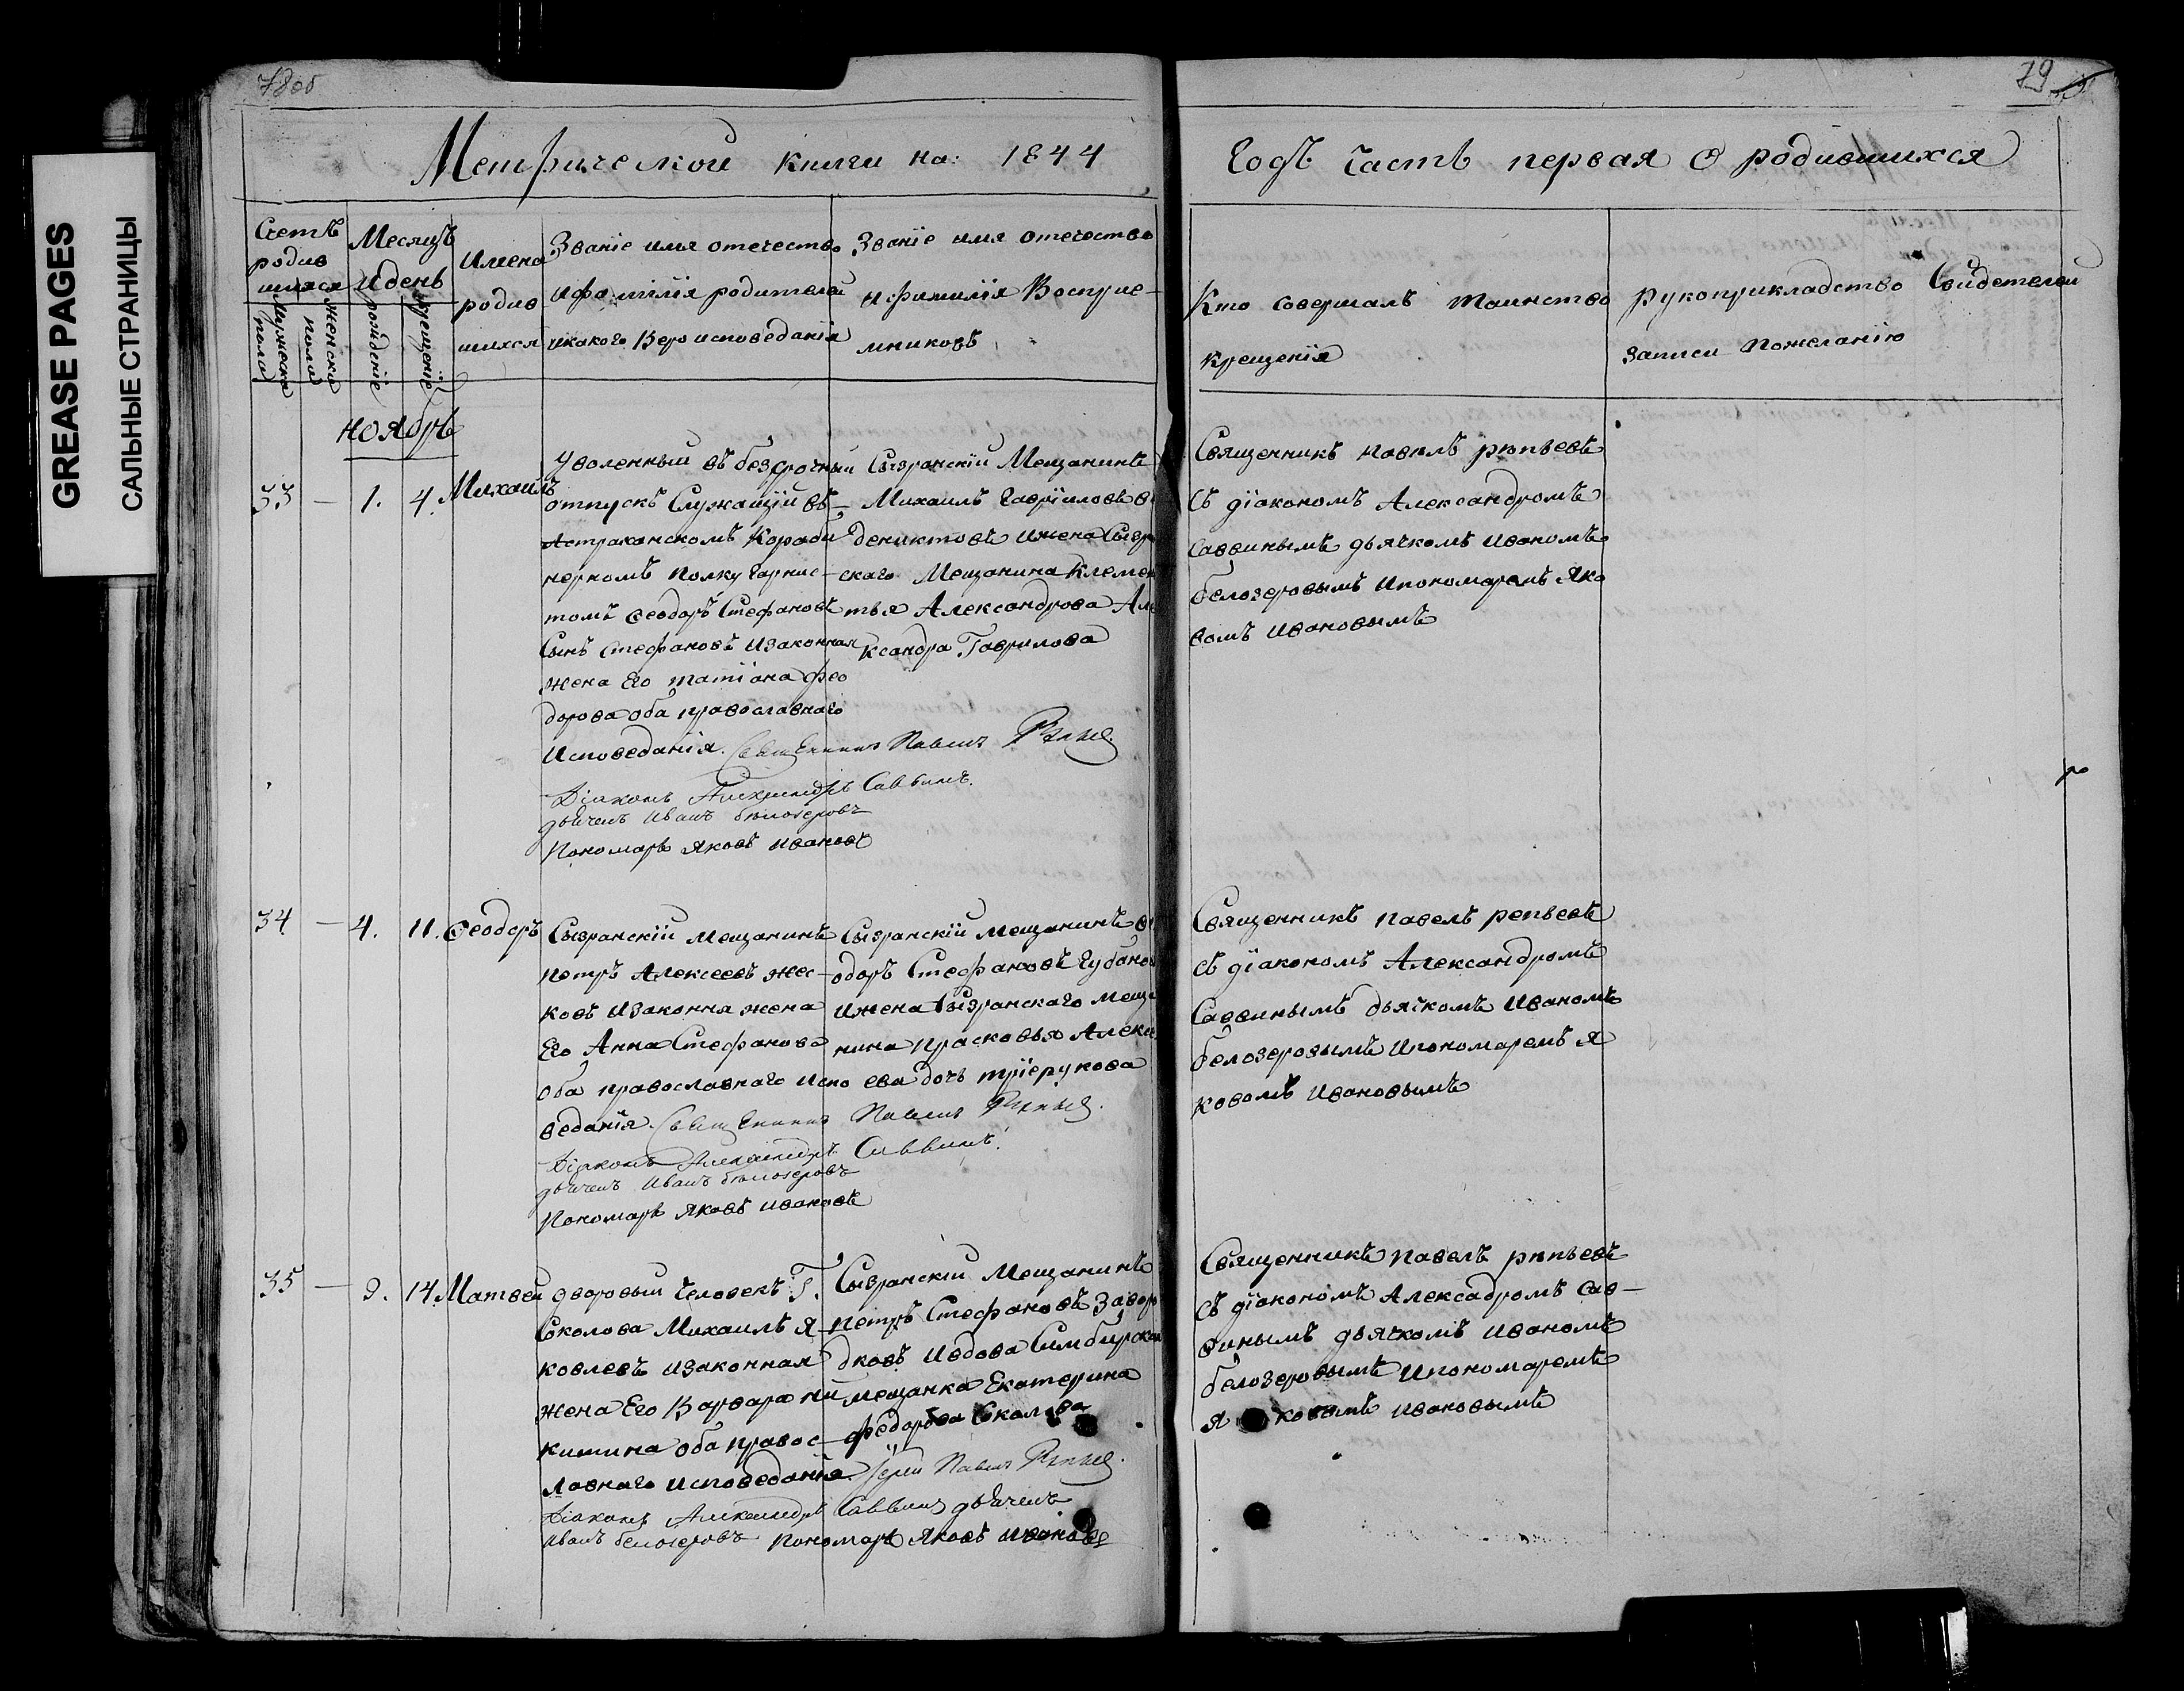 GREASE PAGES
САЛЬНЫЕ СТРАНИЦЫ
78об
79
Метрической книги на: 1844
Годъ часть первая О родившихся
Счетъ родив шихся
Мужеска пола
женска пола
Месяцъ и день
рождение
крещение
Имена родив шихся
Званіе имя отечество
и фамілія родителей
и какого Вероисповеданія
Званіе имя отечество
и фамилія Восприе-
мниковъ
Кто Совершалъ таинство
крещенія
рукоприкладство Свидетелей
записи пожеланію
ноябрь
33 — 1. 4. Михаилъ
Уволенный въ безсрочный
отпускъ Служащій въ
Астраханскомъ Караби
нерномъ полку Гарнис-
томъ Феодоръ Стефановъ
Сынъ Стефановъ Изаконная
жена Его татіана фео
дорова оба православнаго
Исповеданія. Священникъ Павелъ Репьев
Діаконъ Александръ Саввинъ.
дьячекъ Иванъ бѣлозеровъ
Пономарь Яковъ Ивановъ
Сызранскій Мещанинъ
Михаилъ Гавріиловъ
дениктовъ Ижена Сызр
скаго Мещанина Клемен
тья Александрова Але
ксандра Гаврилова
Священникъ павелъ рѣпьевъ
Съ діакономъ Александромъ
Саввинымъ дьячкомъ Иваномъ
белозеровымъ Ипономаремъ Яко
вомъ Ивановымъ
34 — 4. 11. Феодоръ
Сызранскій мещанинъ
петръ Алексеевъ жес-
ковъ Изаконня жена
Его Анна Стефанова
оба православнаго Испо
веданія. Священникъ Павелъ Репьев.
Діаконъ Александръ Саввинъ.
дьячекъ Иванъ бѣлозеровъ
Пономарь Яковъ Ивановъ
Сызранскій мещанинъ
одоръ Стефановъ Губанов
Ижена Сызранскаго меща
нина Прасковья Алексе
ева дочь трїерукова
Священникъ павелъ репьевъ
съ діакономъ Александромъ
Саввинымъ дьячкомъ Иваномъ
белозеровымъ Ипономаремъ Я
ковомъ Ивановымъ
35 — 9. 14. Матвей
дворовый человекъ Г.
Соколова Михаилъ Я-
ковлевъ Изаконная
жена Его Варвара ни
китина оба правос-
лавнаго исповеданія. Іерей Павелъ Репьев.
Діаконъ Александръ Саввинъ дьячекъ
Иванъ белозеровъ Пономарь Яковъ Ивановъ
Сызранскій Мещанинъ
петръ Стефановъ Завор
дковъ Ивдова Симбирская
мещанка Екатерина
федорова Соколова
Священникъ павелъ рѣпьевъ
съ діакономъ Алексадромъ Сав-
винымъ дьячкомъ Иваномъ
белозеровымъ Ипономаремъ
я ковымъ Ивановымъ